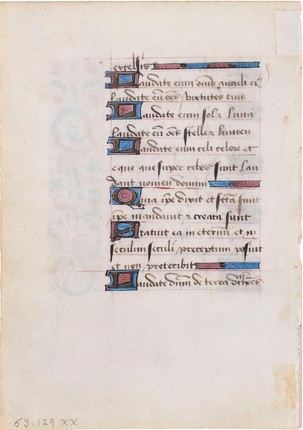 excelsis
Laudate eum oms angeli ei9
Laudate eu oes virtutes eius
Laudate eum sol z luna
laudate eum oes stelle z lumen
Laudate eum celi celorū et
eque que super celos sunt lau
dant nomen domini
Quia ipe dixit et fcā sunt
ipe mandauit z creata sunt
Statuit ea in eternū et in
seculum seculi preceptum posuit
et non preteribit
Laudate dnm de terra
63.129 XX